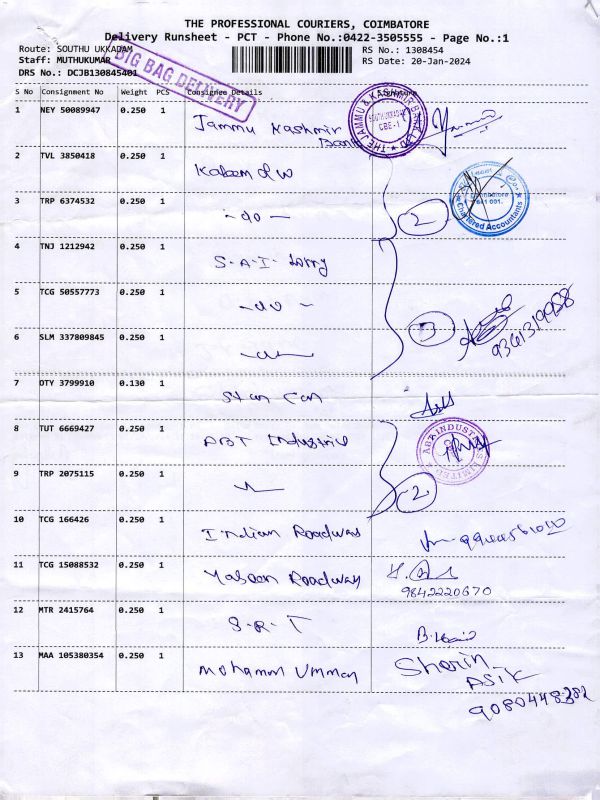 THE PROFESSIONAL COURIERS, COIMBATORE
Delivery Runsheet - PCT - Phone No.:0422-3505555 - Page No.:1
Route: SOUTHU UKKADAM
RS No.: 1308454
Staff: MUTHUKUMAR
RS Date: 20-Jan-2024
DRS No.: DCJB130845401
BIG BAG DELIVERY
S No Consignment No Weight PCS Consignee Details
1 NEY 50089947 0.250 1 Jammu Kashmir Bank
THE JAMMU & KASHMIR BANK LTD
CBE-1
2 TVL 3850418 0.250 1
3 TRP 6374532 0.250 1 -do-
2
Chartered Accountants
Coimbatore
641 001.
4 TNJ 1212942 0.250 1 S-A-I- Lorry
5 TCG 50557773 0.250 1 -do-
3
9361319958
6 SLM 337809845 0.250 1
7 DTY 3799910 0.130 1 Star Can
8 TUT 6669427 0.250 1 ABT Industries
ABT INDUSTRIES LIMITED
9 TRP 2075115 0.250 1
2
10 TCG 166426 0.250 1 Indian Roadways
11 TCG 15088532 0.250 1 Yaseen Roadway
9842220670
12 MTR 2415764 0.250 1 S-R-T
13 MAA 105380354 0.250 1 Mohamm Umman
Sherin
ASIK